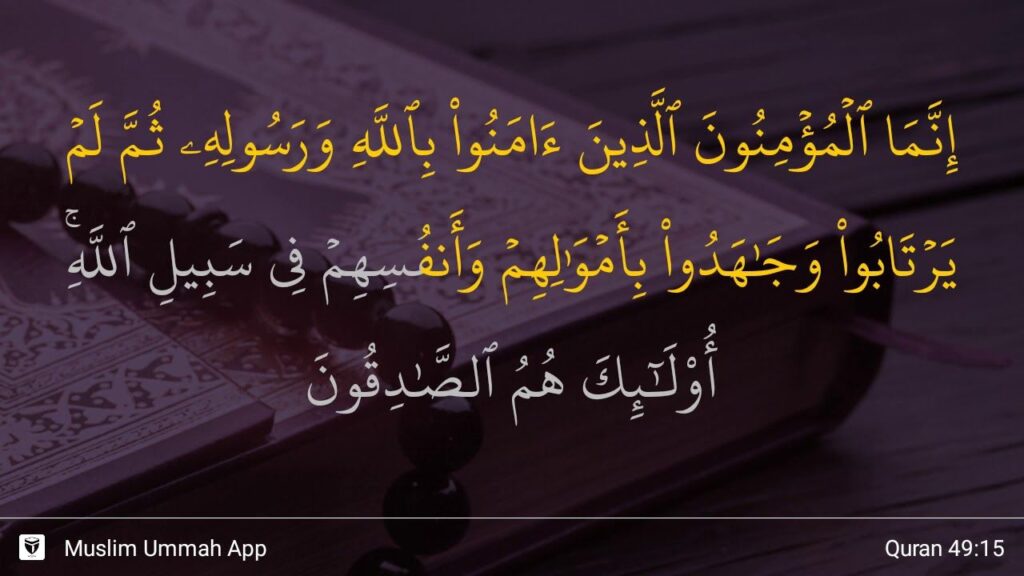 إِنَّمَا ٱلْمُؤْمِنُونَ ٱلَّذِينَ ءَامَنُوا۟ بِٱللَّهِ وَرَسُولِهِۦ ثُمَّ لَمْ
يَرْتَابُوا۟ وَجَـٰهَدُوا۟ بِأَمْوَٰلِهِمْ وَأَنفُسِهِمْ فِى سَبِيلِ ٱللَّهِ ۚ
أُو۟لَـٰٓئِكَ هُمُ ٱلصَّـٰدِقُونَ
Muslim Ummah App
Quran 49:15